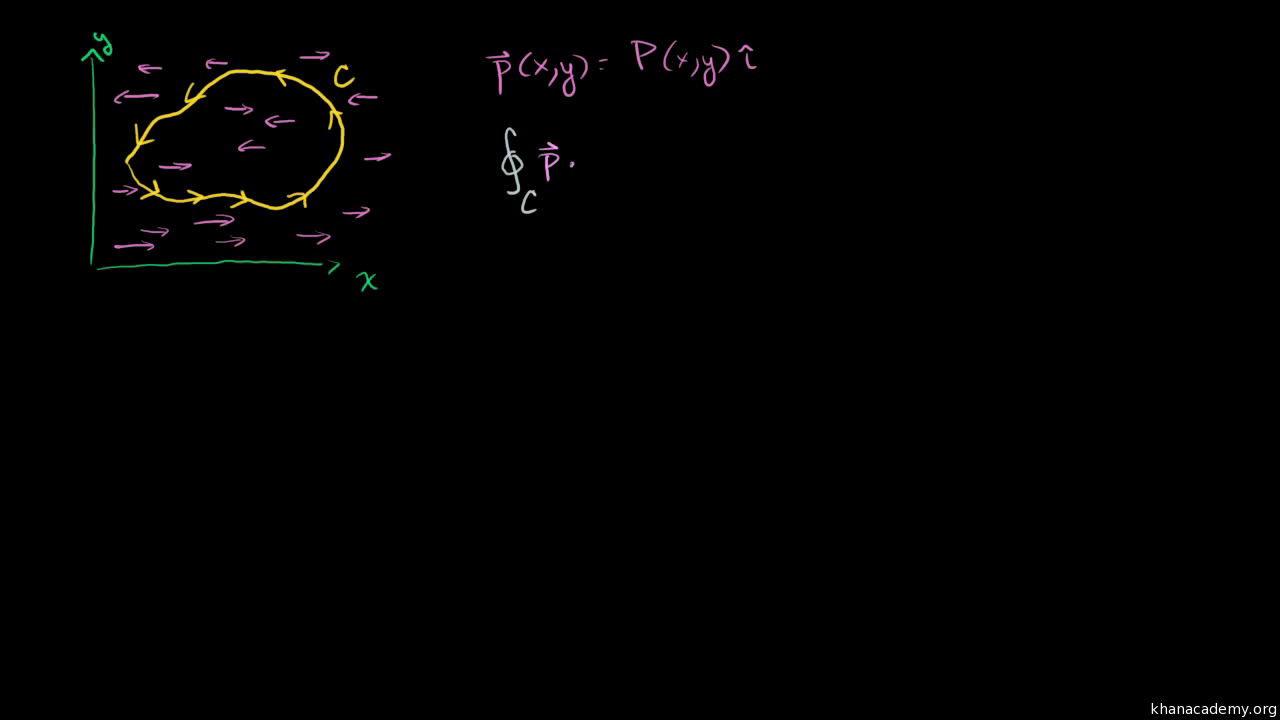 y
C
x
p⃗(x,y) = P(x,y) î
∮ p⃗ ·
C
khanacademy.org